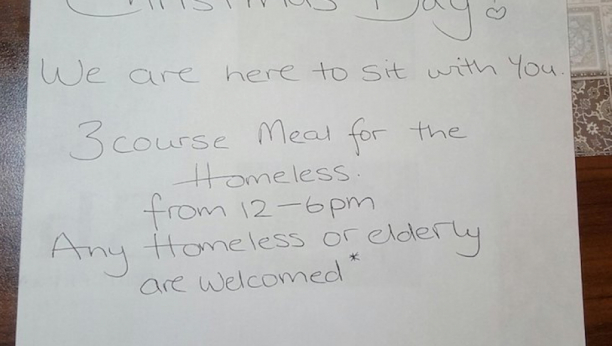 Christmas Day
We are here to sit with You.
3 course Meal for the
Homeless.
from 12-6pm
Any Homeless or elderly
are welcomed*